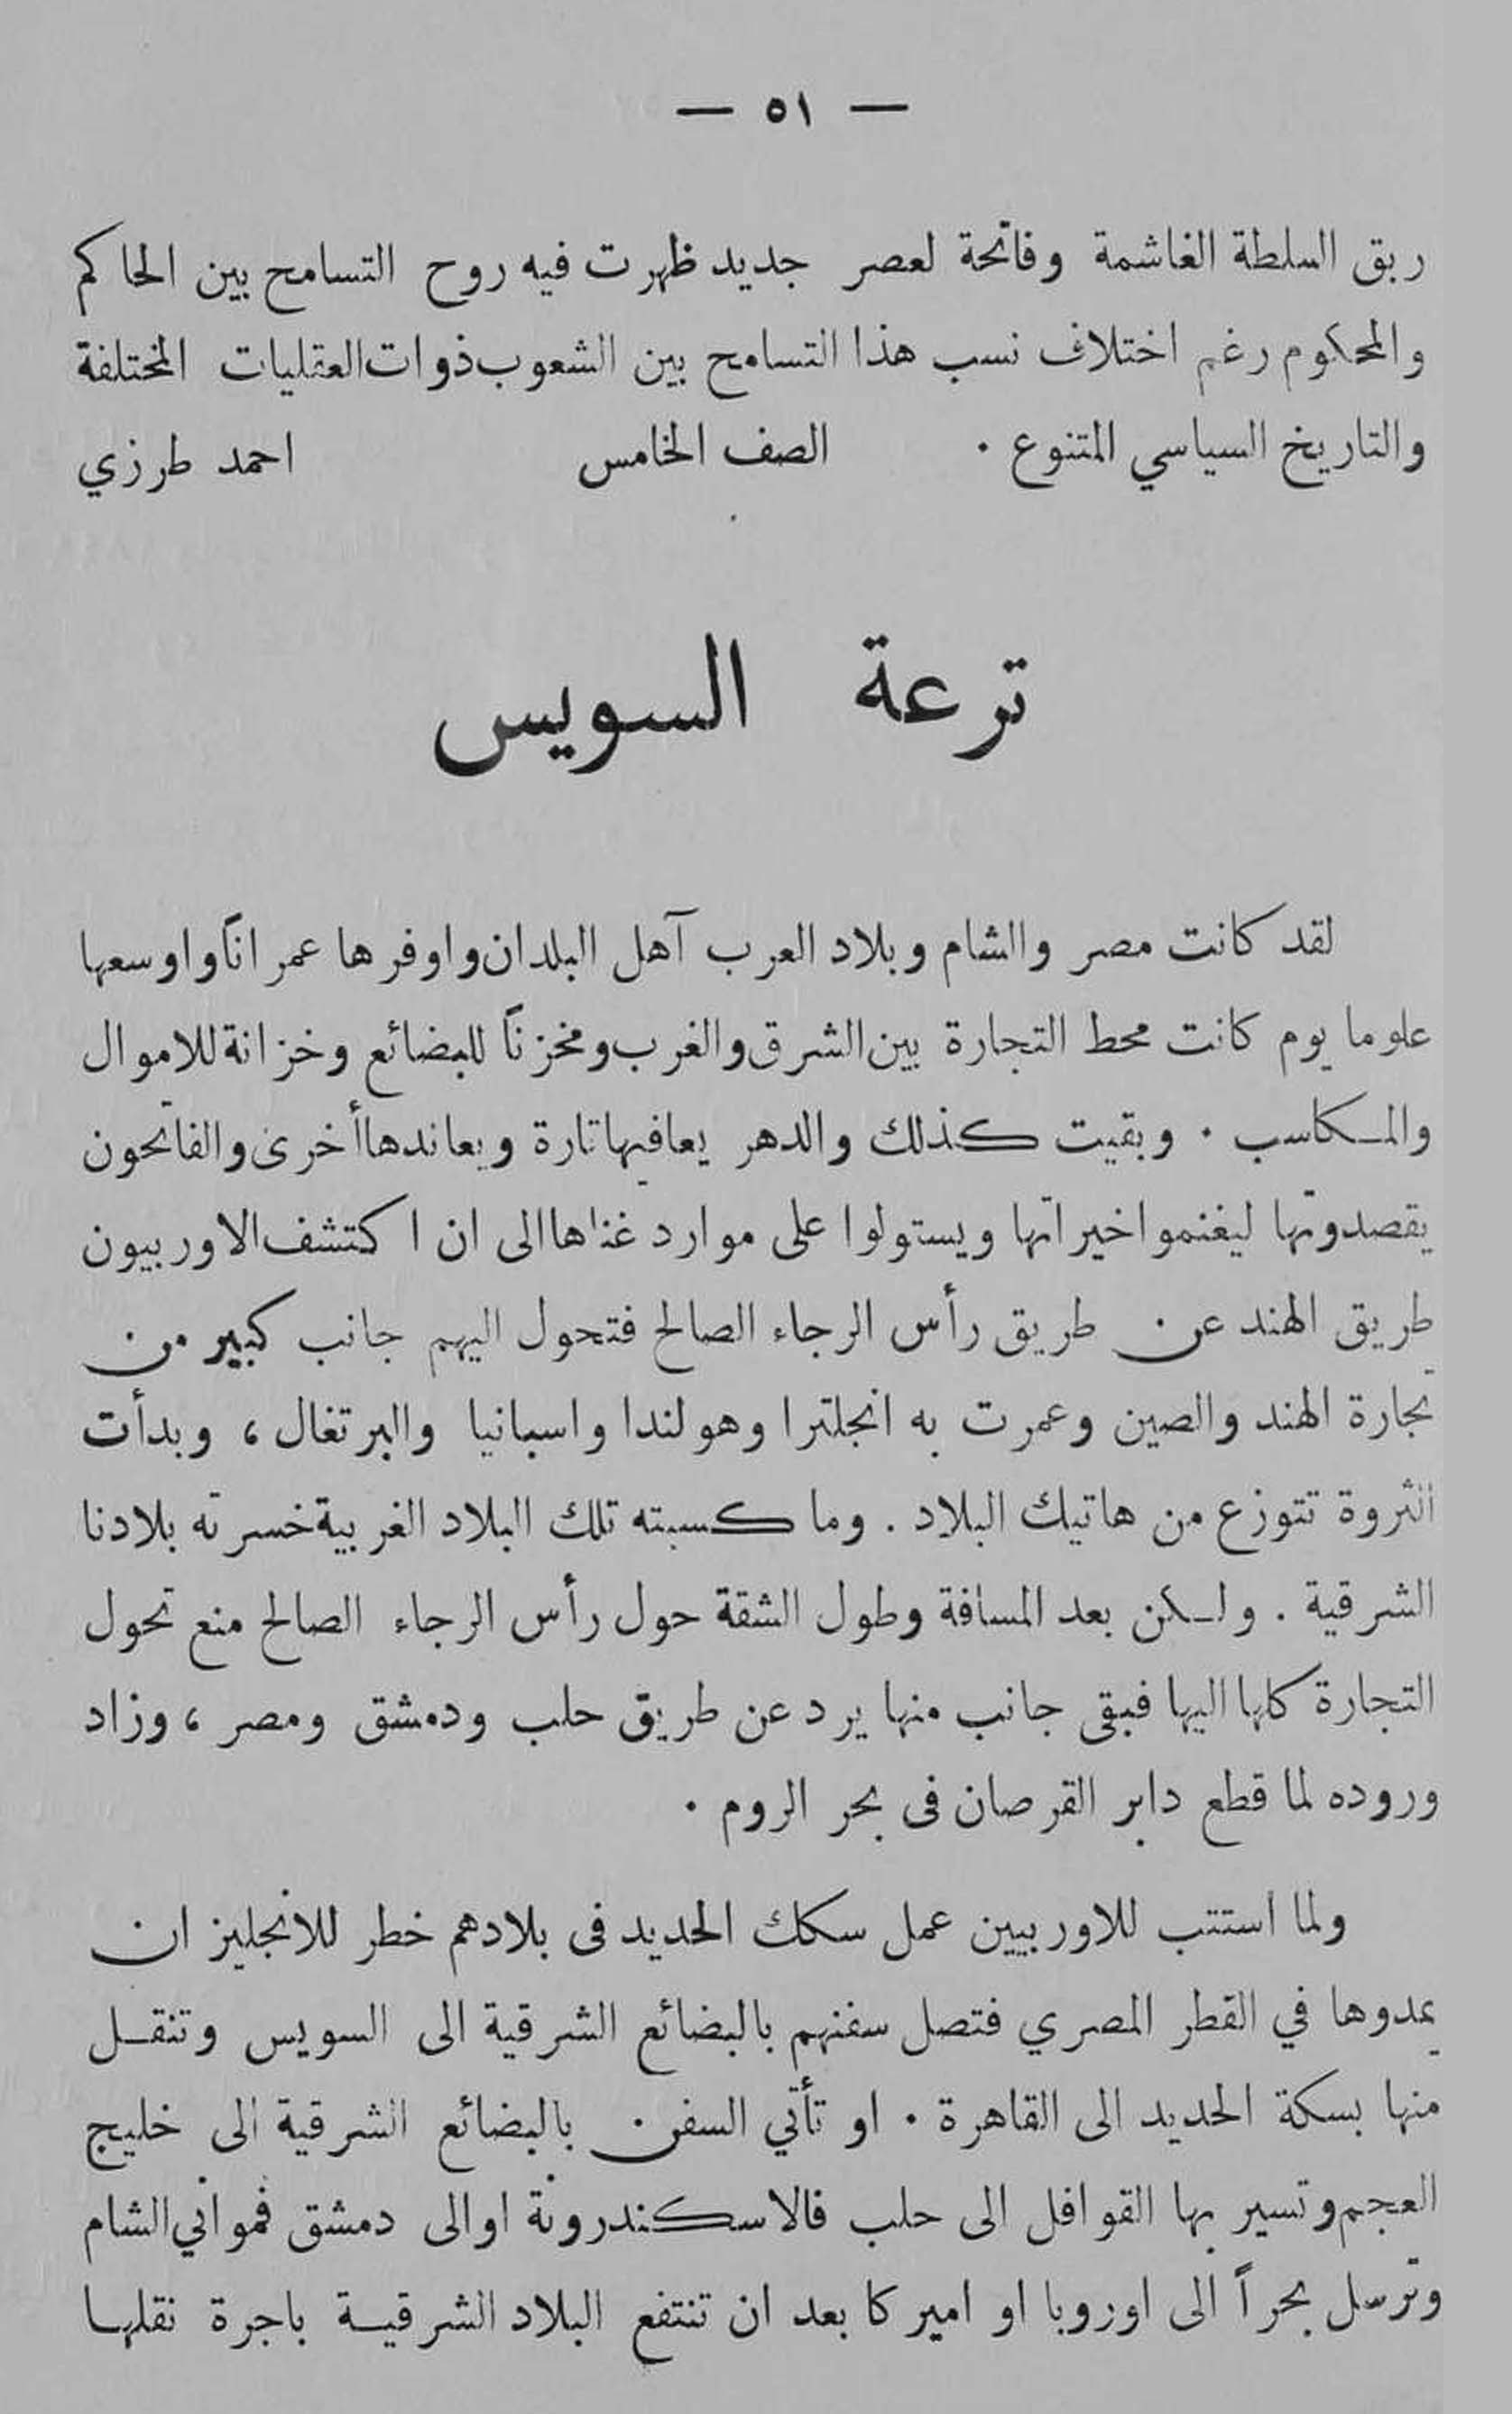 — ٥١ —
ربق السلطة الغاشمة وفاتحة لعصر جديد ظهرت فيه روح التسامح بين الحاكم
والمحكوم رغم اختلاف نسب هذا التسامح بين الشعوب ذوات العقليات المختلفة
والتاريخ السياسي المتنوع . الصف الخامس احمد طرزي
ترعة السويس
لقد كانت مصر والشام وبلاد العرب آهل البلدان واوفرها عمراناً واوسعها
علوما يوم كانت محط التجارة بين الشرق والغرب ومخزناً للبضائع وخزانة للاموال
والمكاسب . وبقيت كذلك والدهر يعافيها تارة ويعاندها أخرى والفاتحون
يقصدونها ليغنموا خيراتها ويستولوا على موارد غناها الى ان اكتشف الاوربيون
طريق الهند عن طريق رأس الرجاء الصالح فتحول اليهم جانب كبير من
تجارة الهند والصين وعمرت به انجلترا وهولندا واسبانيا والبرتغال ، وبدأت
الثروة تتوزع من هاتيك البلاد . وما كسبته تلك البلاد الغربية خسرته بلادنا
الشرقية . ولكن بعد المسافة وطول الشقة حول رأس الرجاء الصالح منع تحول
التجارة كلها اليها فبقى جانب منها يرد عن طريق حلب ودمشق ومصر ، وزاد
وروده لما قطع دابر القرصان فى بحر الروم .
ولما استتب للاوربيين عمل سكك الحديد فى بلادهم خطر للانجليز ان
يمدوها في القطر المصري فتصل سفنهم بالبضائع الشرقية الى السويس وتنقل
منها بسكة الحديد الى القاهرة . او تأتي السفن بالبضائع الشرقية الى خليج
العجم وتسير بها القوافل الى حلب فالاسكندرونة او الى دمشق فموانئ الشام
وترسل بحراً الى اوروبا او اميركا بعد ان تنتفع البلاد الشرقية باجرة نقلها